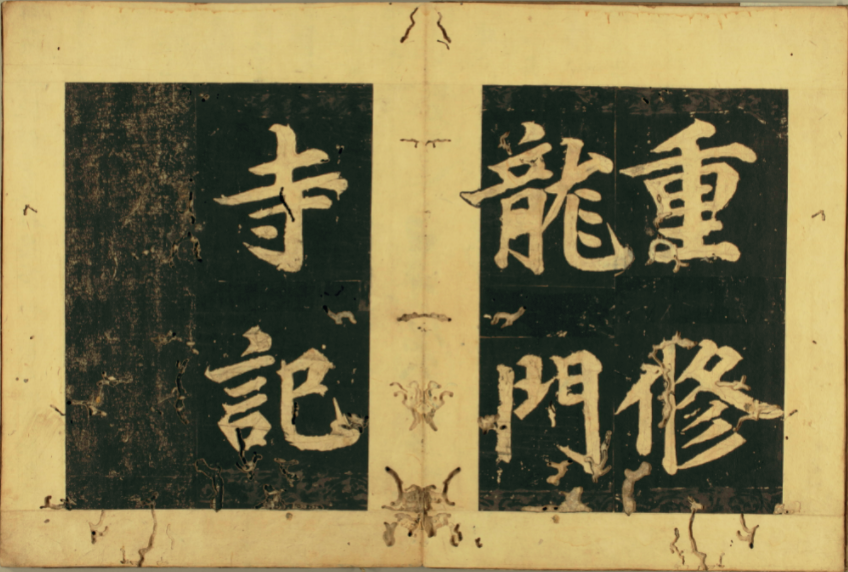 重修
龍門
寺記